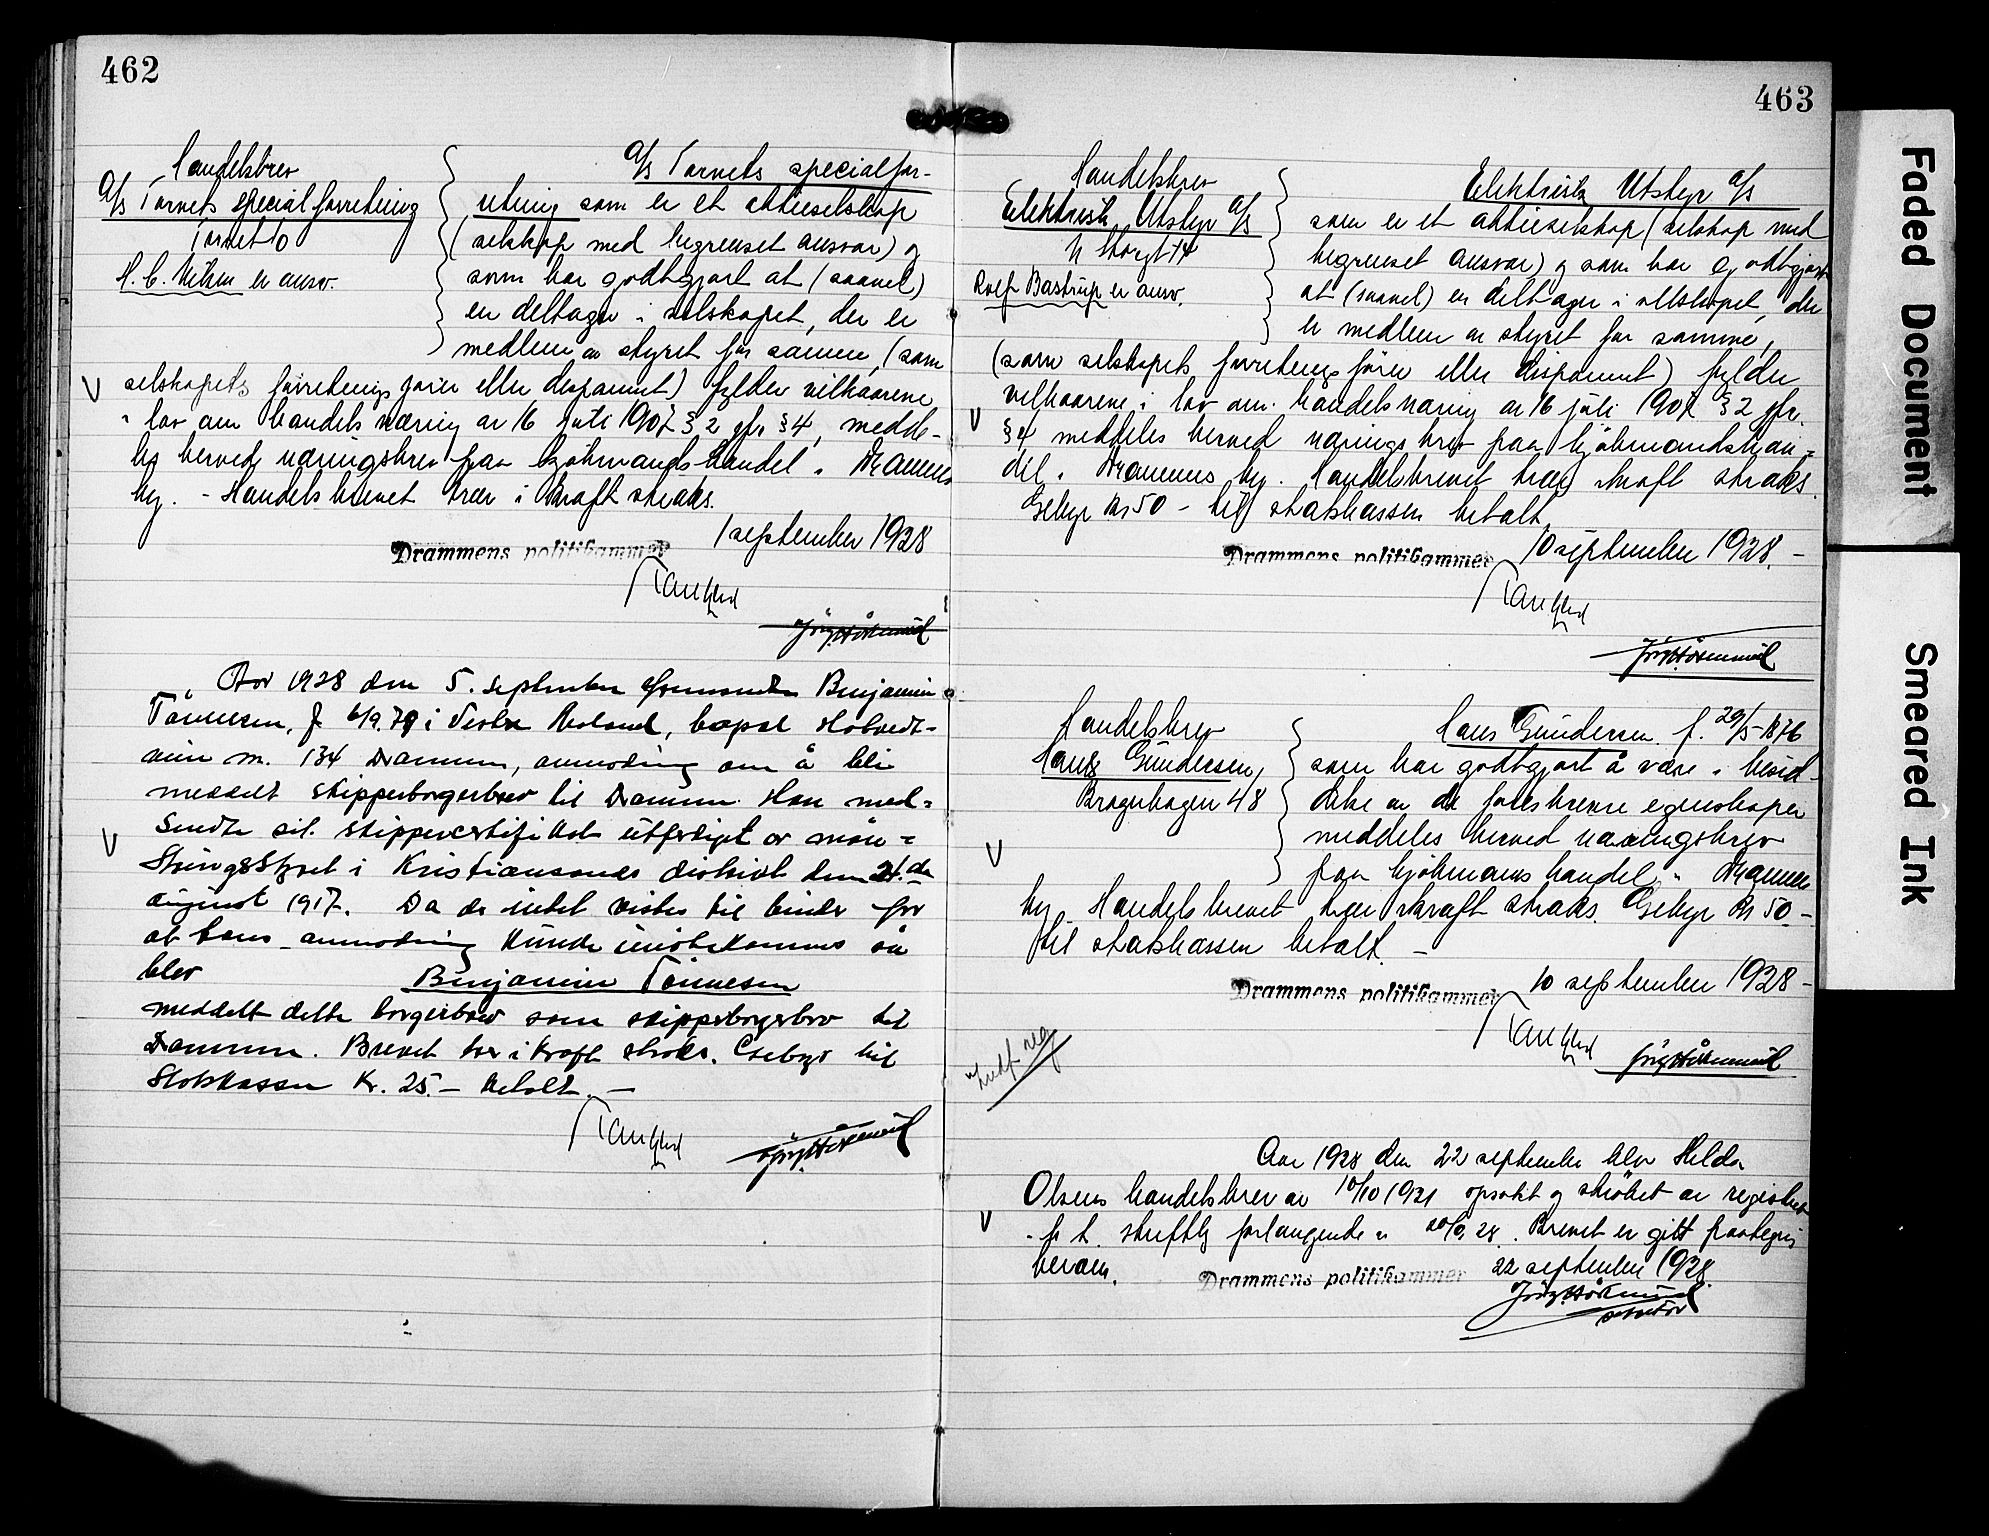 462
Handelsbrev
A/S Tornets specialforretning
Tornet 10
H. C. er ansv.
A/S Tornets specialfor-
retning som er et aktieselskap
(selskap med begrenset ansvar) og
som har godtgjort at (saavel)
en deltager i selskapet, der er
medlem av styret for samme, (som
selskapets forretningsfører eller disponent) fylder vilkaarene
i lov om handelsnæring av 16 juli 1907 § 2 jfr § 4, medde-
les herved næringsbrev paa kjøbmandshandel i Drammens
by. - Handelsbrevet trær i kraft straks.
Drammens politikammer 1 september 1928
Aar 1928 den 5. september fremsendte Benjamin
Tönnesen, f. 6/9.79 i Vestre, bopæl
m. 134 Drammen, anmodning om å bli
meddelt skipperborgerbrev til Drammen. Han med-
sendte sit skippercertifikat utferdiget av møn-
stringsstyret i Kristiansands distrikt den 21.de
august 1917. Da der intet vistes til hinder for
at hans anmodning kunde imøtekommes så
blev Benjamin Tönnesen
meddelt dette borgerbrev som skipperborgerbrev til
Drammen. Brevet trær i kraft straks. Gebyr til
Statskassen Kr. 25.- betalt. -
463
Handelsbrev
Elektrisk Utstyr A/S
N Storgt 14
Rolf Bastrup er ansv.
Elektrisk Utstyr A/S
som er et aktieselskap (selskap med
begrenset ansvar) og som har godtgjort
at (saavel) en deltager i selskapet, der
er medlem av styret for samme,
(som selskapets forretningsfører eller disponent) fylder
vilkaarene i lov om handelsnæring av 16 juli 1907 § 2 jfr.
§ 4 meddeles herved næringsbrev paa kjøbmandshan-
del i Drammens by. Handelsbrevet trær i kraft straks.
Gebyr kr 50 - til statskassen betalt.
Drammens politikammer 10 september 1928. -
Handelsbrev
Hans Gundersen,
Bragerhagen 48
Hans Gundersen f. 29/5-1876
som har godtgjort å være i besid-
delse av de foreskrevne egenskaper
meddeles herved næringsbrev
paa kjøbmandshandel i Drammens
by. Handelsbrevet trær i kraft straks. Gebyr kr 50 -
til statskassen betalt. -
Drammens politikammer 10 september 1928 -
Aar 1928 den 22 september blev Hilda
Olsens handelsbrev av 10/10 1921 opsakt og strøket av registret
i h. t. skriftlig forlangende av 20/9. 28. Brevet er gitt paategning
herom.
Drammens politikammer 22 september 1928.
Faded Document
Smeared Ink